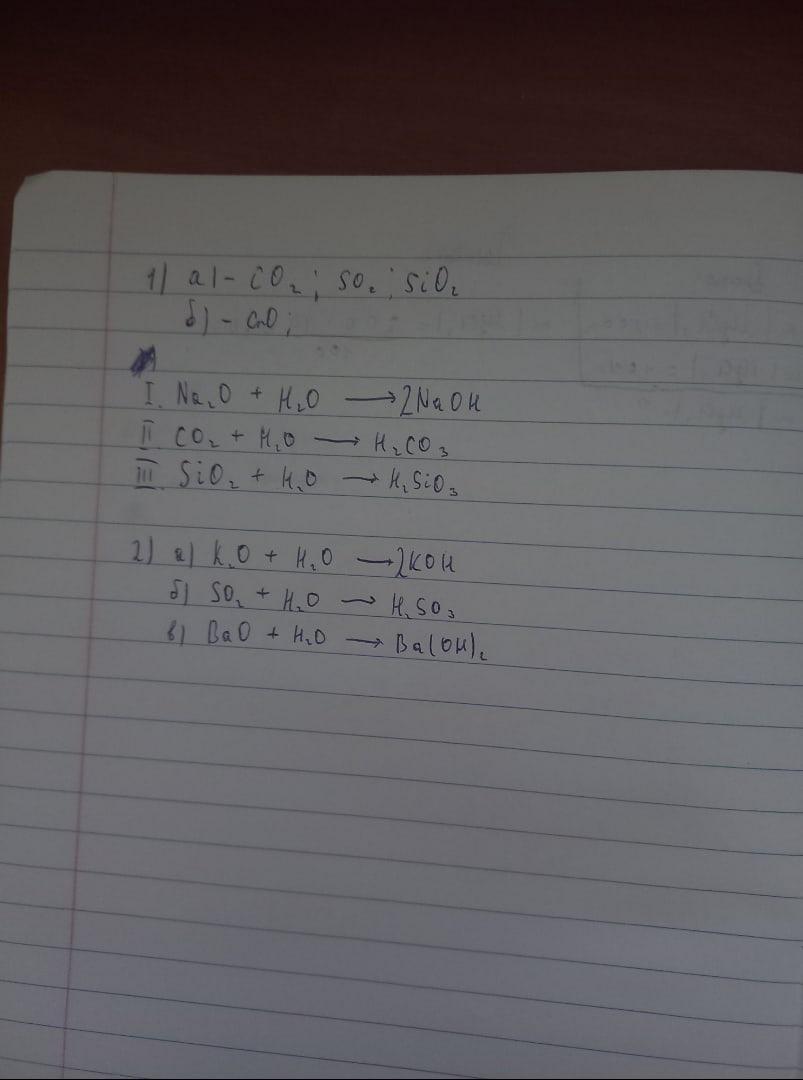 1) а) - CO₂; SO₂; SiO₂
б) - CuO;
I. Na₂O + H₂O → 2NaOH
II CO₂ + H₂O → H₂CO₃
III SiO₂ + H₂O → H₂SiO₃
2) а) K₂O + H₂O → 2KOH
б) SO₂ + H₂O → H₂SO₃
в) BaO + H₂O → Ba(OH)₂